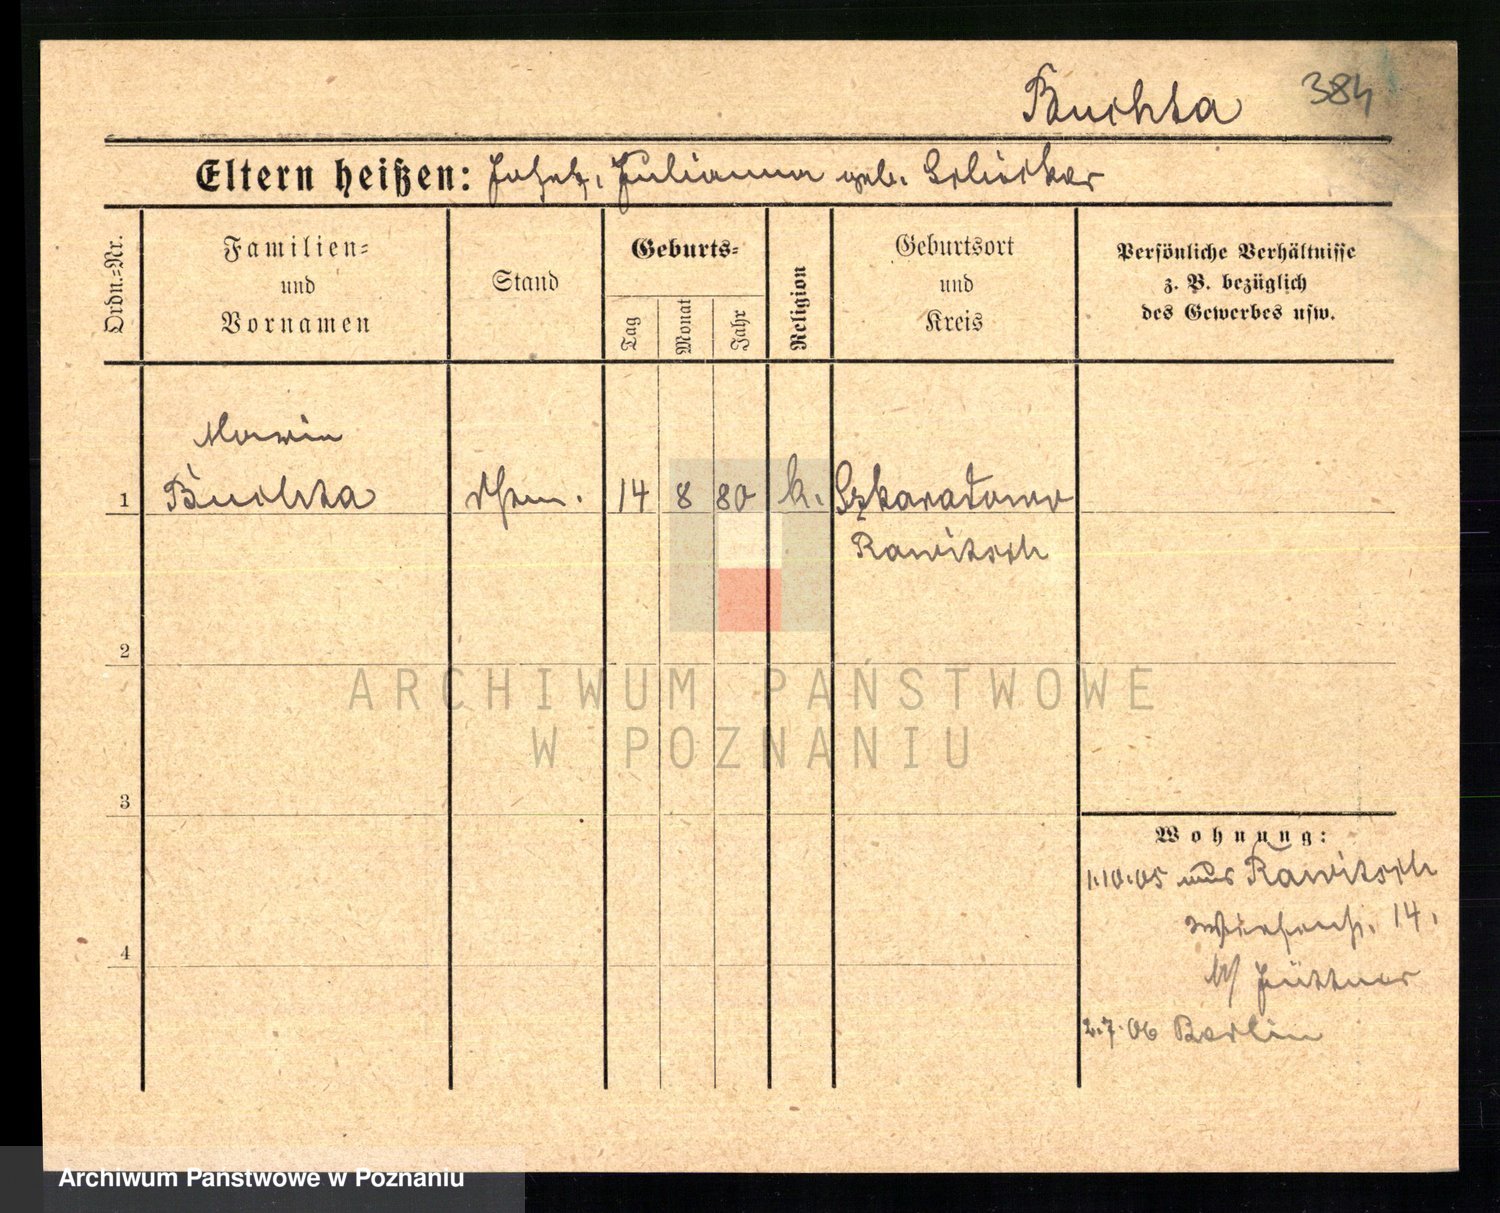 Buchta 384
Eltern heißen: Josef, Julianna geb.
Ordn.=Nr.
Familien=
und
Vornamen
Stand
Geburts=
Tag
Monat
Jahr
Religion
Geburtsort
und
Kreis
Persönliche Verhältnisse
z. B. bezüglich
des Gewerbes usw.
Marie
1 Buchta 14 8 80 k. Szkaradowo
Rawitsch
2
ARCHIWUM PAŃSTWOWE
W POZNANIU
3
Wohnung:
1.10.05 aus Rawitsch
14.
b/ Jüttner
4
2.7.06 Berlin
Archiwum Państwowe w Poznaniu